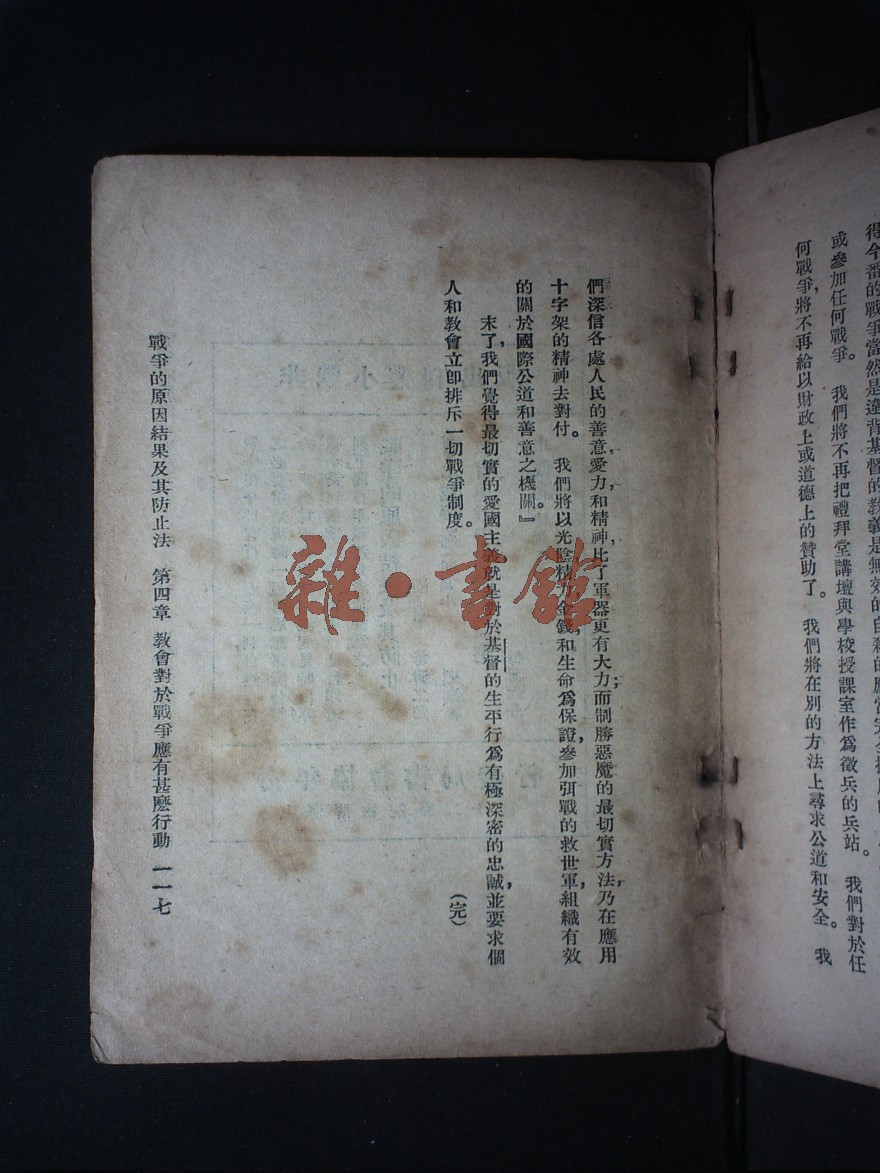 得今番的戰爭當然是違背基督的教義是無效的自殺的應當完全
或參加任何戰爭。　我們將不再把禮拜堂講壇與學校授課室作爲徵兵的兵站。　我們對於任
何戰爭，將不再給以財政上或道德上的贊助了。　我們將在別的方法上尋求公道和安全。　我
們深信各處人民的善意，愛力，和精神，比了軍器更有大力；而制勝惡魔的最切實方法，乃在應用
十字架的精神去對付。　我們將以光陰精力，金錢，和生命爲保證，參加弭戰的救世軍，組織有效
的關於國際公道和善意之機關。』
末了，我們覺得最切實的愛國主義就是對於基督的生平行爲有極深密的忠誠，並要求個
人和教會立卽排斥一切戰爭制度。
（完）
戰爭的原因結果及其防止法　第四章　教會對於戰爭應有甚麼行動　一一七
雜・書館